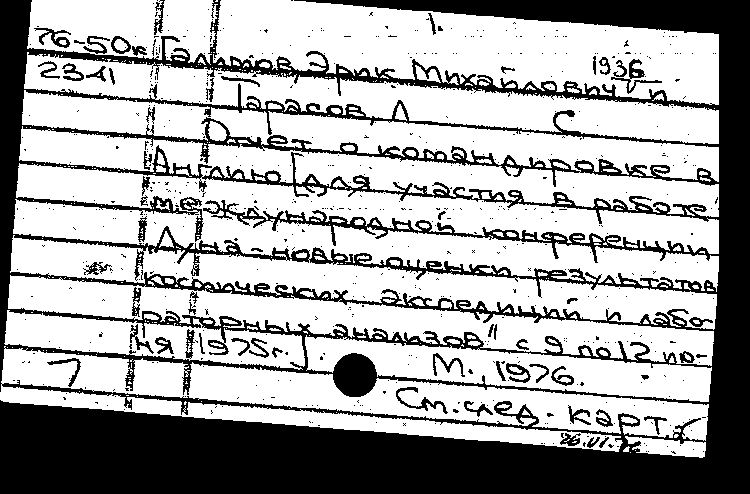 1.
76-50к Галимов, Эрик Михайлович и
1936
23-11
Тарасов, Л С
Отчет о командировке в
Англию [для участия в работе
международной конференции
"Луна - новые оценки результатов
космических экспедиций и лабо-
раторных анализов" с 9 по 12 ию-
ня 1975г.].
М., 1976.
См. след. карт.
26.VI.76